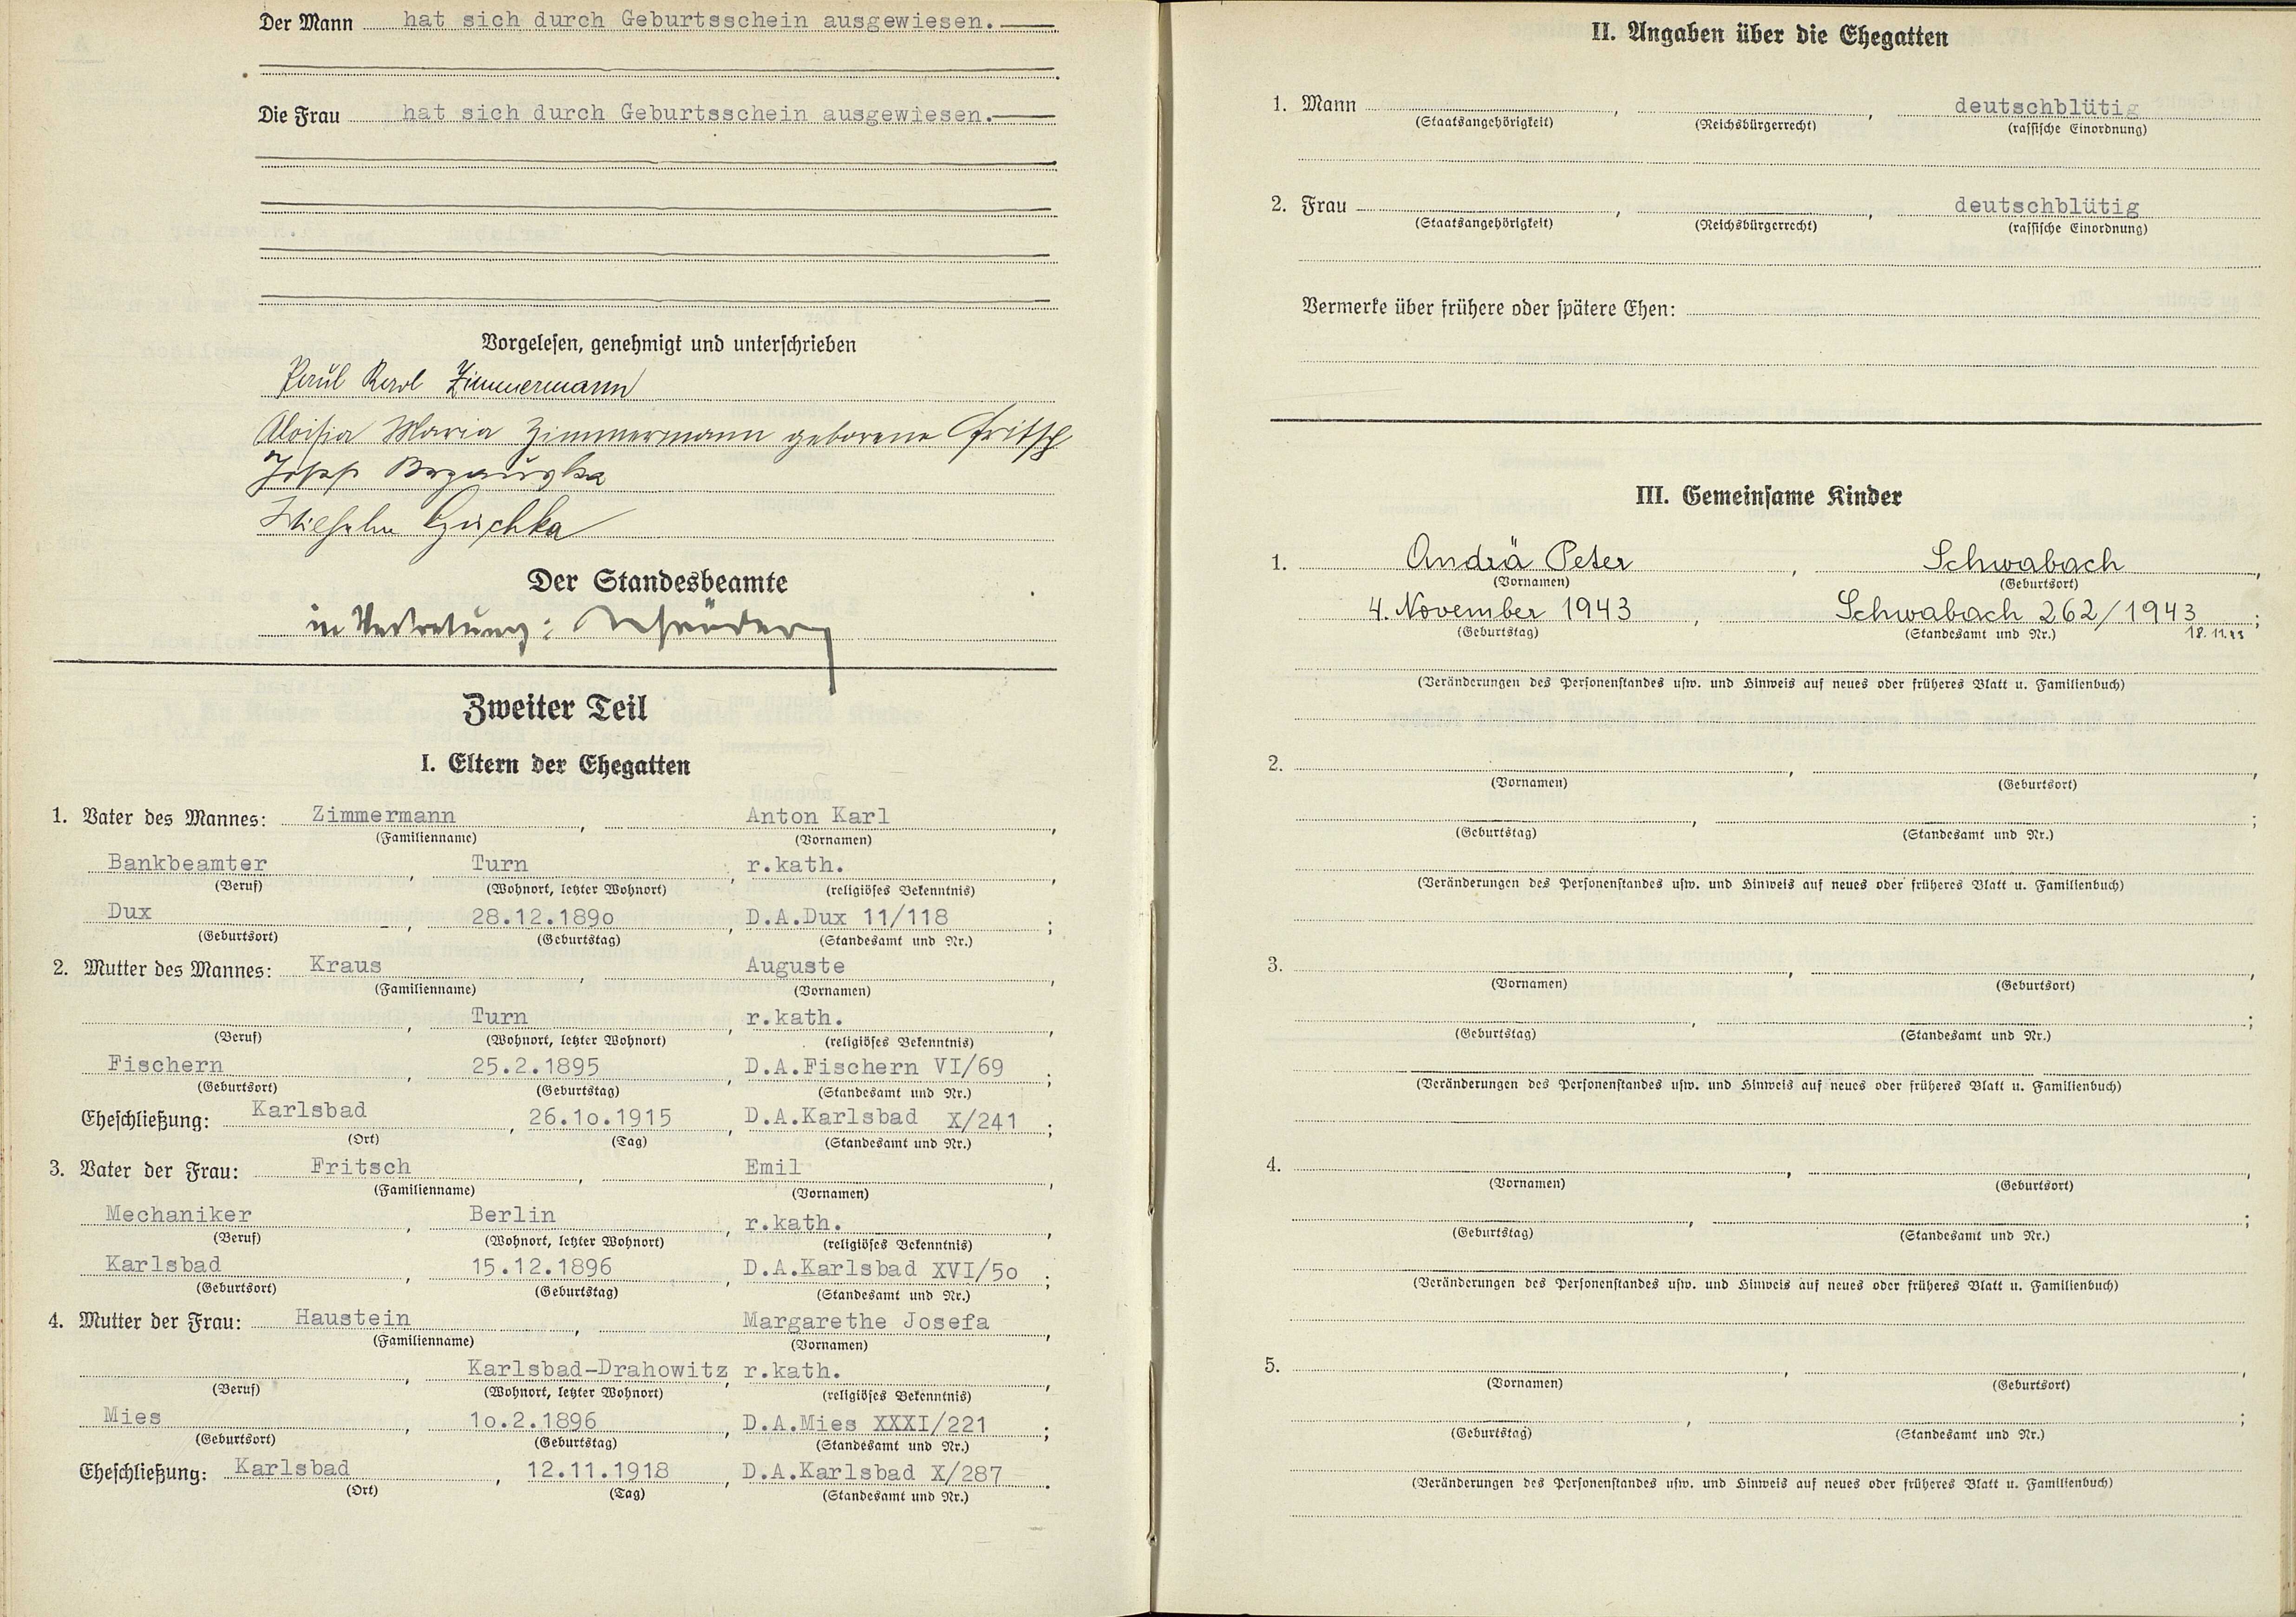 Der Mann hat sich durch Geburtsschein ausgewiesen.
Die Frau hat sich durch Geburtsschein ausgewiesen.
Vorgelesen, genehmigt und unterschrieben
Paul Karl Zimmermann
Aloisia Maria Zimmermann geborene Fritsch
Josef
Wilhelm
Der Standesbeamte
in Vertretung:
Zweiter Teil
I. Eltern der Ehegatten
1. Vater des Mannes: Zimmermann, Anton Karl,
(Familienname) (Vornamen)
Bankbeamter, Turn, r.kath.,
(Beruf) (Wohnort, letzter Wohnort) (religiöses Bekenntnis)
Dux, 28.12.189o, D.A.Dux 11/118;
(Geburtsort) (Geburtstag) (Standesamt und Nr.)
2. Mutter des Mannes: Kraus, Auguste,
(Familienname) (Vornamen)
, Turn, r.kath.,
(Beruf) (Wohnort, letzter Wohnort) (religiöses Bekenntnis)
Fischern, 25.2.1895, D.A.Fischern VI/69;
(Geburtsort) (Geburtstag) (Standesamt und Nr.)
Eheschließung: Karlsbad, 26.1o.1915, D.A.Karlsbad X/241;
(Ort) (Tag) (Standesamt und Nr.)
3. Vater der Frau: Fritsch, Emil,
(Familienname) (Vornamen)
Mechaniker, Berlin, r.kath.,
(Beruf) (Wohnort, letzter Wohnort) (religiöses Bekenntnis)
Karlsbad, 15.12.1896, D.A.Karlsbad XVI/5o;
(Geburtsort) (Geburtstag) (Standesamt und Nr.)
4. Mutter der Frau: Haustein, Margarethe Josefa,
(Familienname) (Vornamen)
, Karlsbad-Drahowitz, r.kath.,
(Beruf) (Wohnort, letzter Wohnort) (religiöses Bekenntnis)
Mies, 1o.2.1896, D.A.Mies XXXI/221;
(Geburtsort) (Geburtstag) (Standesamt und Nr.)
Eheschließung: Karlsbad, 12.11.1918, D.A.Karlsbad X/287.
(Ort) (Tag) (Standesamt und Nr.)
II. Angaben über die Ehegatten
1. Mann , , deutschblütig
(Staatsangehörigkeit) (Reichsbürgerrecht) (rassische Einordnung)
2. Frau , , deutschblütig
(Staatsangehörigkeit) (Reichsbürgerrecht) (rassische Einordnung)
Vermerke über frühere oder spätere Ehen:
III. Gemeinsame Kinder
1. Andrä Peter, Schwabach,
(Vornamen) (Geburtsort)
4. November 1943, Schwabach 262/1943;
(Geburtstag) (Standesamt und Nr.) 18.11.43
(Veränderungen des Personenstandes usw. und Hinweis auf neues oder früheres Blatt u. Familienbuch)
2. , ,
(Vornamen) (Geburtsort)
, ;
(Geburtstag) (Standesamt und Nr.)
(Veränderungen des Personenstandes usw. und Hinweis auf neues oder früheres Blatt u. Familienbuch)
3. , ,
(Vornamen) (Geburtsort)
, ;
(Geburtstag) (Standesamt und Nr.)
(Veränderungen des Personenstandes usw. und Hinweis auf neues oder früheres Blatt u. Familienbuch)
4. , ,
(Vornamen) (Geburtsort)
, ;
(Geburtstag) (Standesamt und Nr.)
(Veränderungen des Personenstandes usw. und Hinweis auf neues oder früheres Blatt u. Familienbuch)
5. , ,
(Vornamen) (Geburtsort)
, ;
(Geburtstag) (Standesamt und Nr.)
(Veränderungen des Personenstandes usw. und Hinweis auf neues oder früheres Blatt u. Familienbuch)